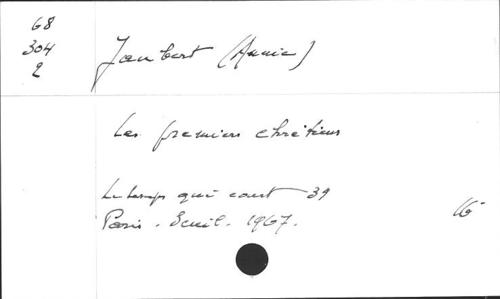 68
304
2
Jaubert (Annie)
Les premiers chrétiens
Le temps qui court 39
Paris. Seuil. 1967.
16°